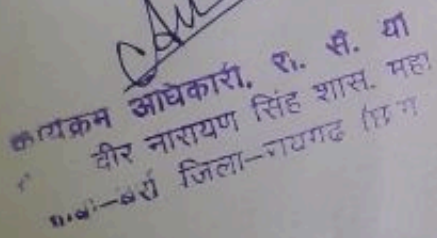 कार्यक्रम अधिकारी, रा. से. यो
वीर नारायण सिंह शास. महा
जिला-रायगढ (छ ग